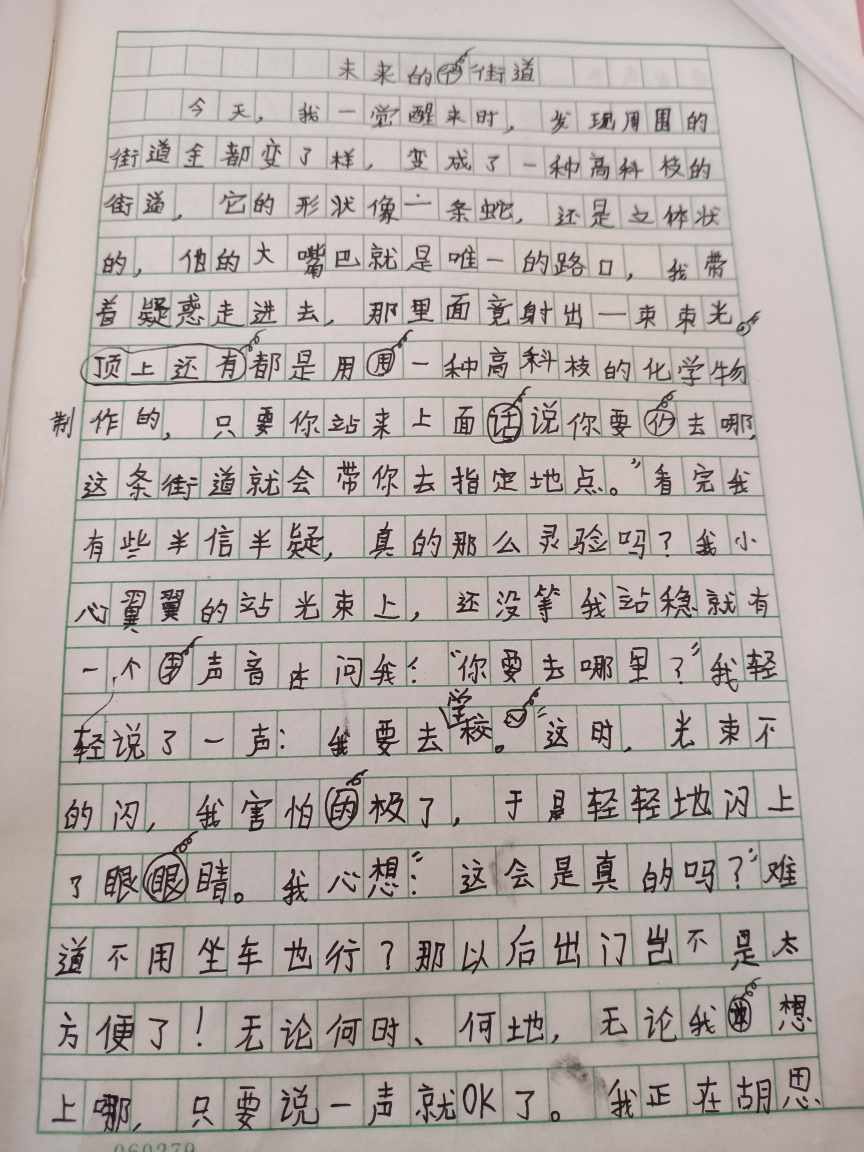 未来的街道
今天，我一觉醒来时，发现周围的
街道全都变了样，变成了一种高科枝的
街道，它的形状像一条蛇，还是立体状
的，他的大嘴巴就是唯一的路口，我带
着疑惑走进去，那里面竟射出一束束光。
顶上还有都是用一种高科枝的化学物
制作的，只要你站来上面说你要去哪，
这条街道就会带你去指定地点。”看完我
有些半信半疑，真的那么灵验吗？我小
心翼翼的站光束上，还没等我站稳就有
一个声音在问我：“你要去哪里？”我轻
轻说了一声：我要去学校。”这时，光束不
的闪，我害怕极了，于是轻轻地闪上
了眼睛。我心想：“这会是真的吗？”难
道不用坐车也行？那以后出门岂不是太
方便了！无论何时、何地，无论我想
上哪，只要说一声就OK了。我正在胡思
060279